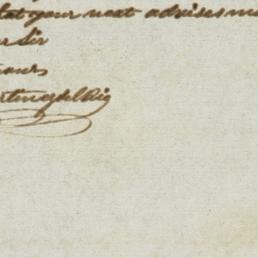 that your next advises m
r Sir
ours
rtinezdelRio